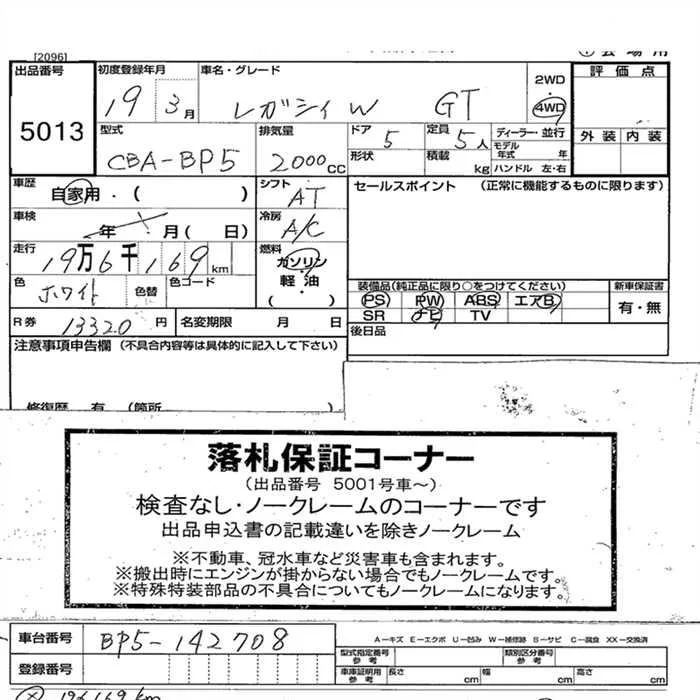 [2096]
出品番号
5013
初度登録年月
19 3月
車名・グレード
レガシィW GT
2WD
4WD
評価点
外装 内装
型式
CBA-BP5
排気量
2000CC
ドア 5
定員 5人
ディーラー・並行
モデル年式 年
形状
積載 kg
ハンドル 左・右
車歴
自家用・( )
シフト AT
セールスポイント (正常に機能するものに限ります)
車検
年 月( 日)
冷房 A/C
走行
19万6千169km
燃料
ガソリン
軽油
( )
色 ホワイト
色替
色コード
装備品(純正品に限り○をつけてください)
新車保証書
PS PW ABS エアB
有・無
SR ナビ TV
R券 13320円
名変期限 月 日
後日品
注意事項申告欄 (不具合内容等は具体的に記入して下さい)
修復歴 有 (箇所 )
落札保証コーナー
(出品番号 5001号車~)
検査なし・ノークレームのコーナーです
出品申込書の記載違いを除きノークレーム
※不動車、冠水車など災害車も含まれます。
※搬出時にエンジンが掛からない場合でもノークレームです。
※特殊特装部品の不具合についてもノークレームになります。
車台番号 BP5-142708
A－キズ E－エクボ U－凹み W－補修跡 S－サビ C－腐食 XX－交換済
型式指定番号 参考
類別区分番号 参考
登録番号
車庫証明用 参考
長さ cm
幅 cm
高さ cm
196169km